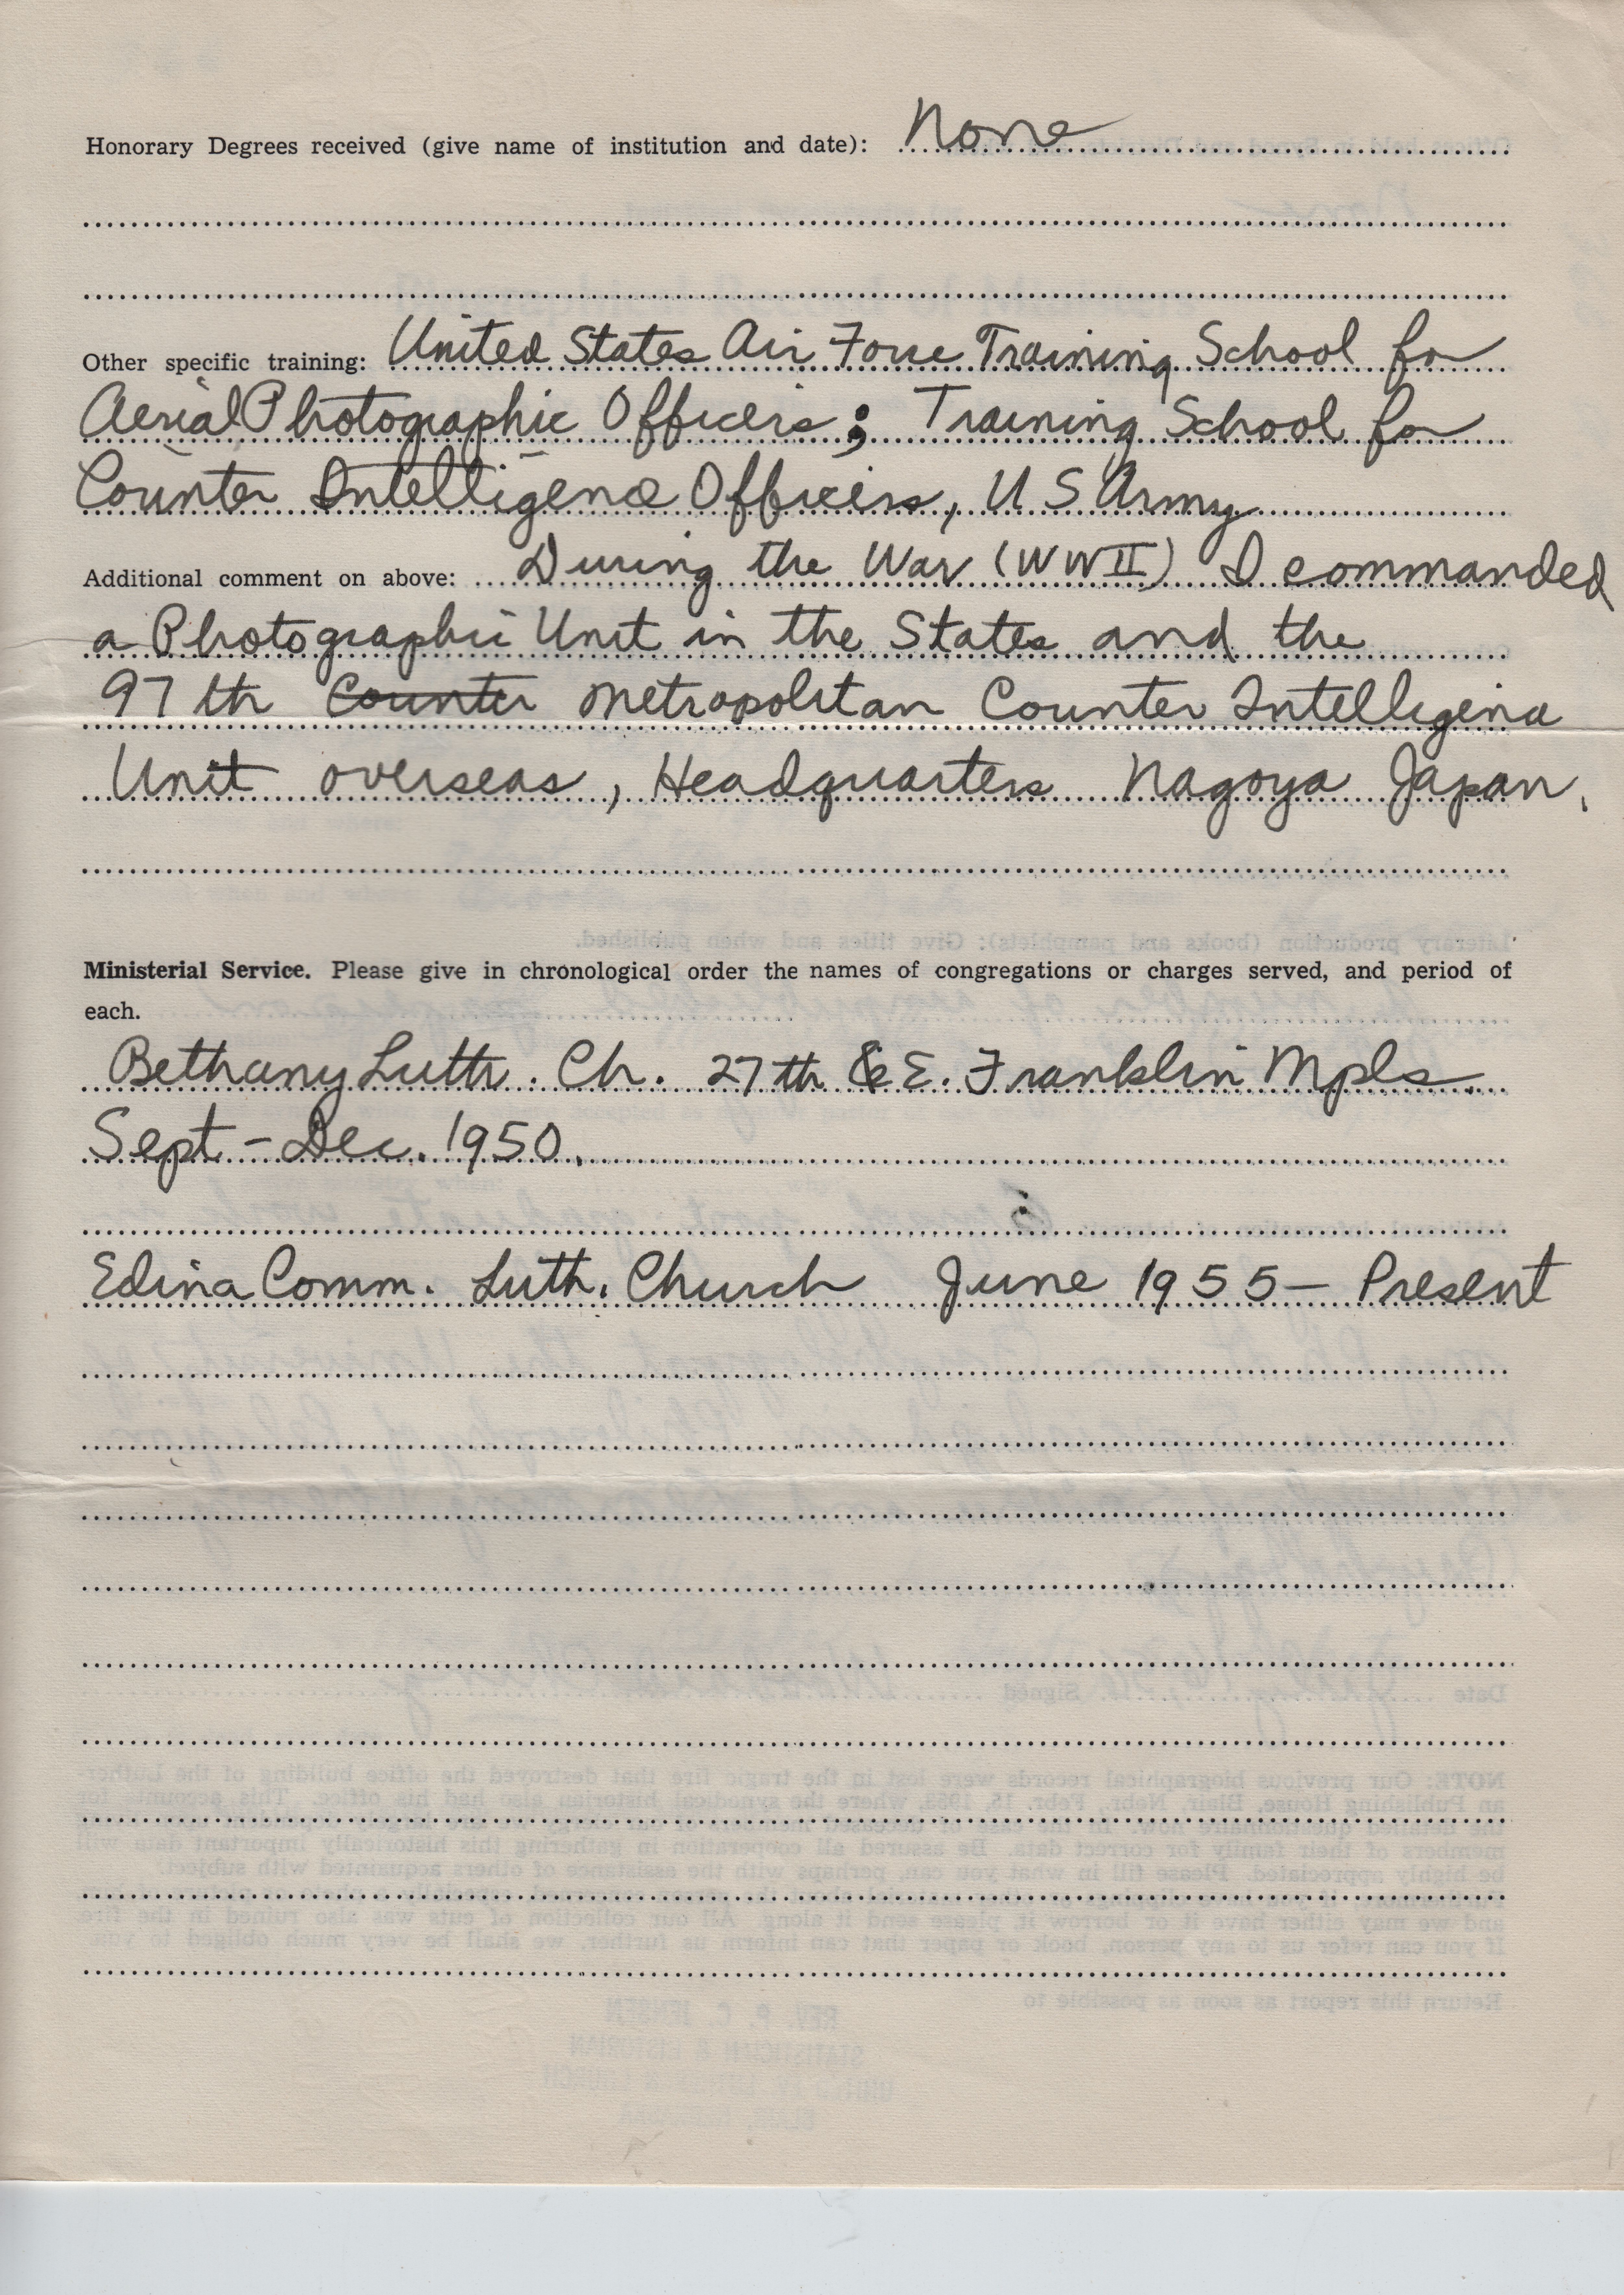 Honorary Degrees received (give name of institution and date): None
Other specific training: United States Air Force Training School for
Aerial Photographic Officers; Training School for
Counter Intelligence Officers, U S Army
Additional comment on above: During the War (WW II) I commanded
a Photographic Unit in the States and the
97th Counter Metropolitan Counter Intelligence
Unit overseas, Headquarters Nagoya Japan.
Ministerial Service. Please give in chronological order the names of congregations or charges served, and period of
each.
Bethany Luth. Ch. 27th & E. Franklin Mpls.
Sept - Dec. 1950.
Edina Comm. Luth. Church June 1955 - Present